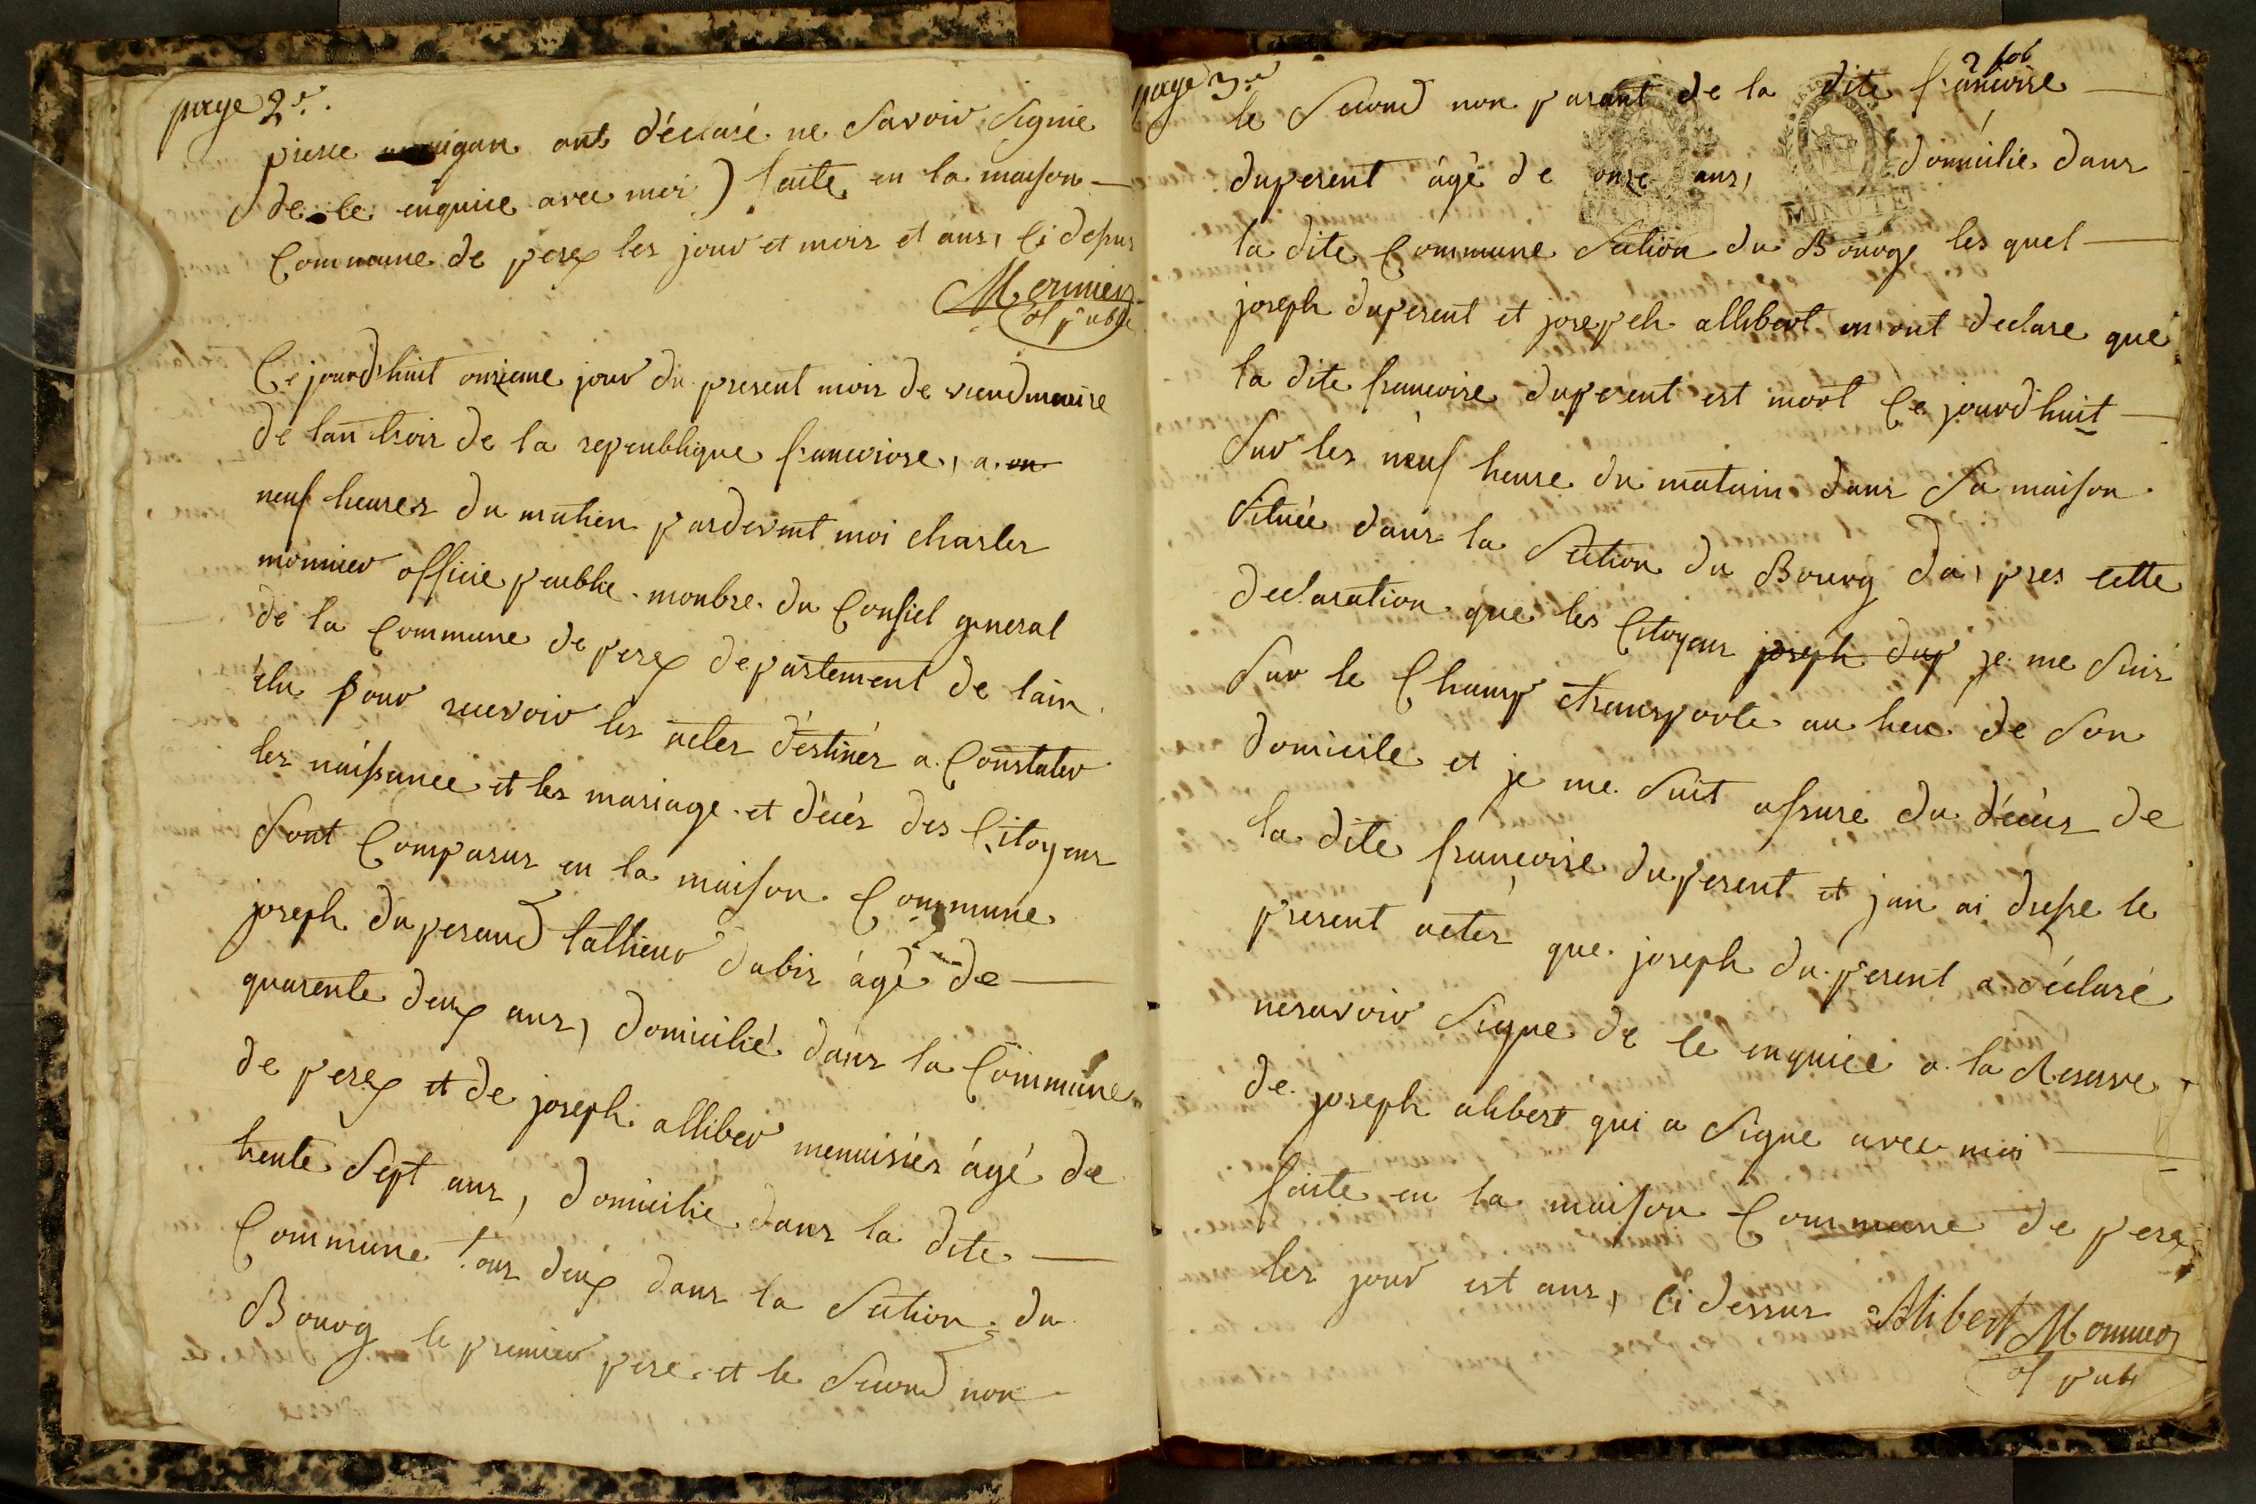 page 2e.
pierre ont déclaré ne Savoir Signie
de ce enquice avec moi) faite en la maison
Commune de perex les jour et mois et ans, Ci desus
Monnier
of public
Ce jourd'huit onzieme jour du present mois de viendmaire
de lan trois de la republique francoise, a on
neuf heures du matien pardevent moi charles
monnier officie peublic monbre du Consiel general
de la Commune de perex departement de lain
élu pour recevoir les actes déstinés a Constater
les naissance et les mariage et décés des Citoyens
Sont Comparus en la maison Commune
joseph duperand tallieur dabis âgé de
quarente deux ans, domicilié dans la Commune
de perex et de joseph alliber menuisier âgé de
trente Sept ans, domicilié dans la dite
Commune tous deux dans la Section du
Bourg le premier pere et le Second non
page 3e
2 fol
le Second non parant de la dite francoise
duperent âgé de onze ans, domicilie dans
la dite Commune Section du Bourg les quel
joseph duperent et josepeh allibert mont declare que
la dite francoise duperent est mort Ce jourdhuit
Sur les neuf heure du matain dans Sa maison
Située dans la Section du Bourg da, pres cette
declaration que les Citoyens joseph dup je me Suis
Sur le Champ transporte au lieu de Son
domicile et je me Suit assure du décés de
la dite françoise duperent et jan ai dresse le
present actes que joseph duperent a déclaré
nesavoir Signe de ce enquice a la Reserve
de joseph alibert qui a Signe avec moi
faite en la maison Commune de perex
les jour est ans, Ci dessus Alibert Monnier
of pub
MINUTE
MINUTE